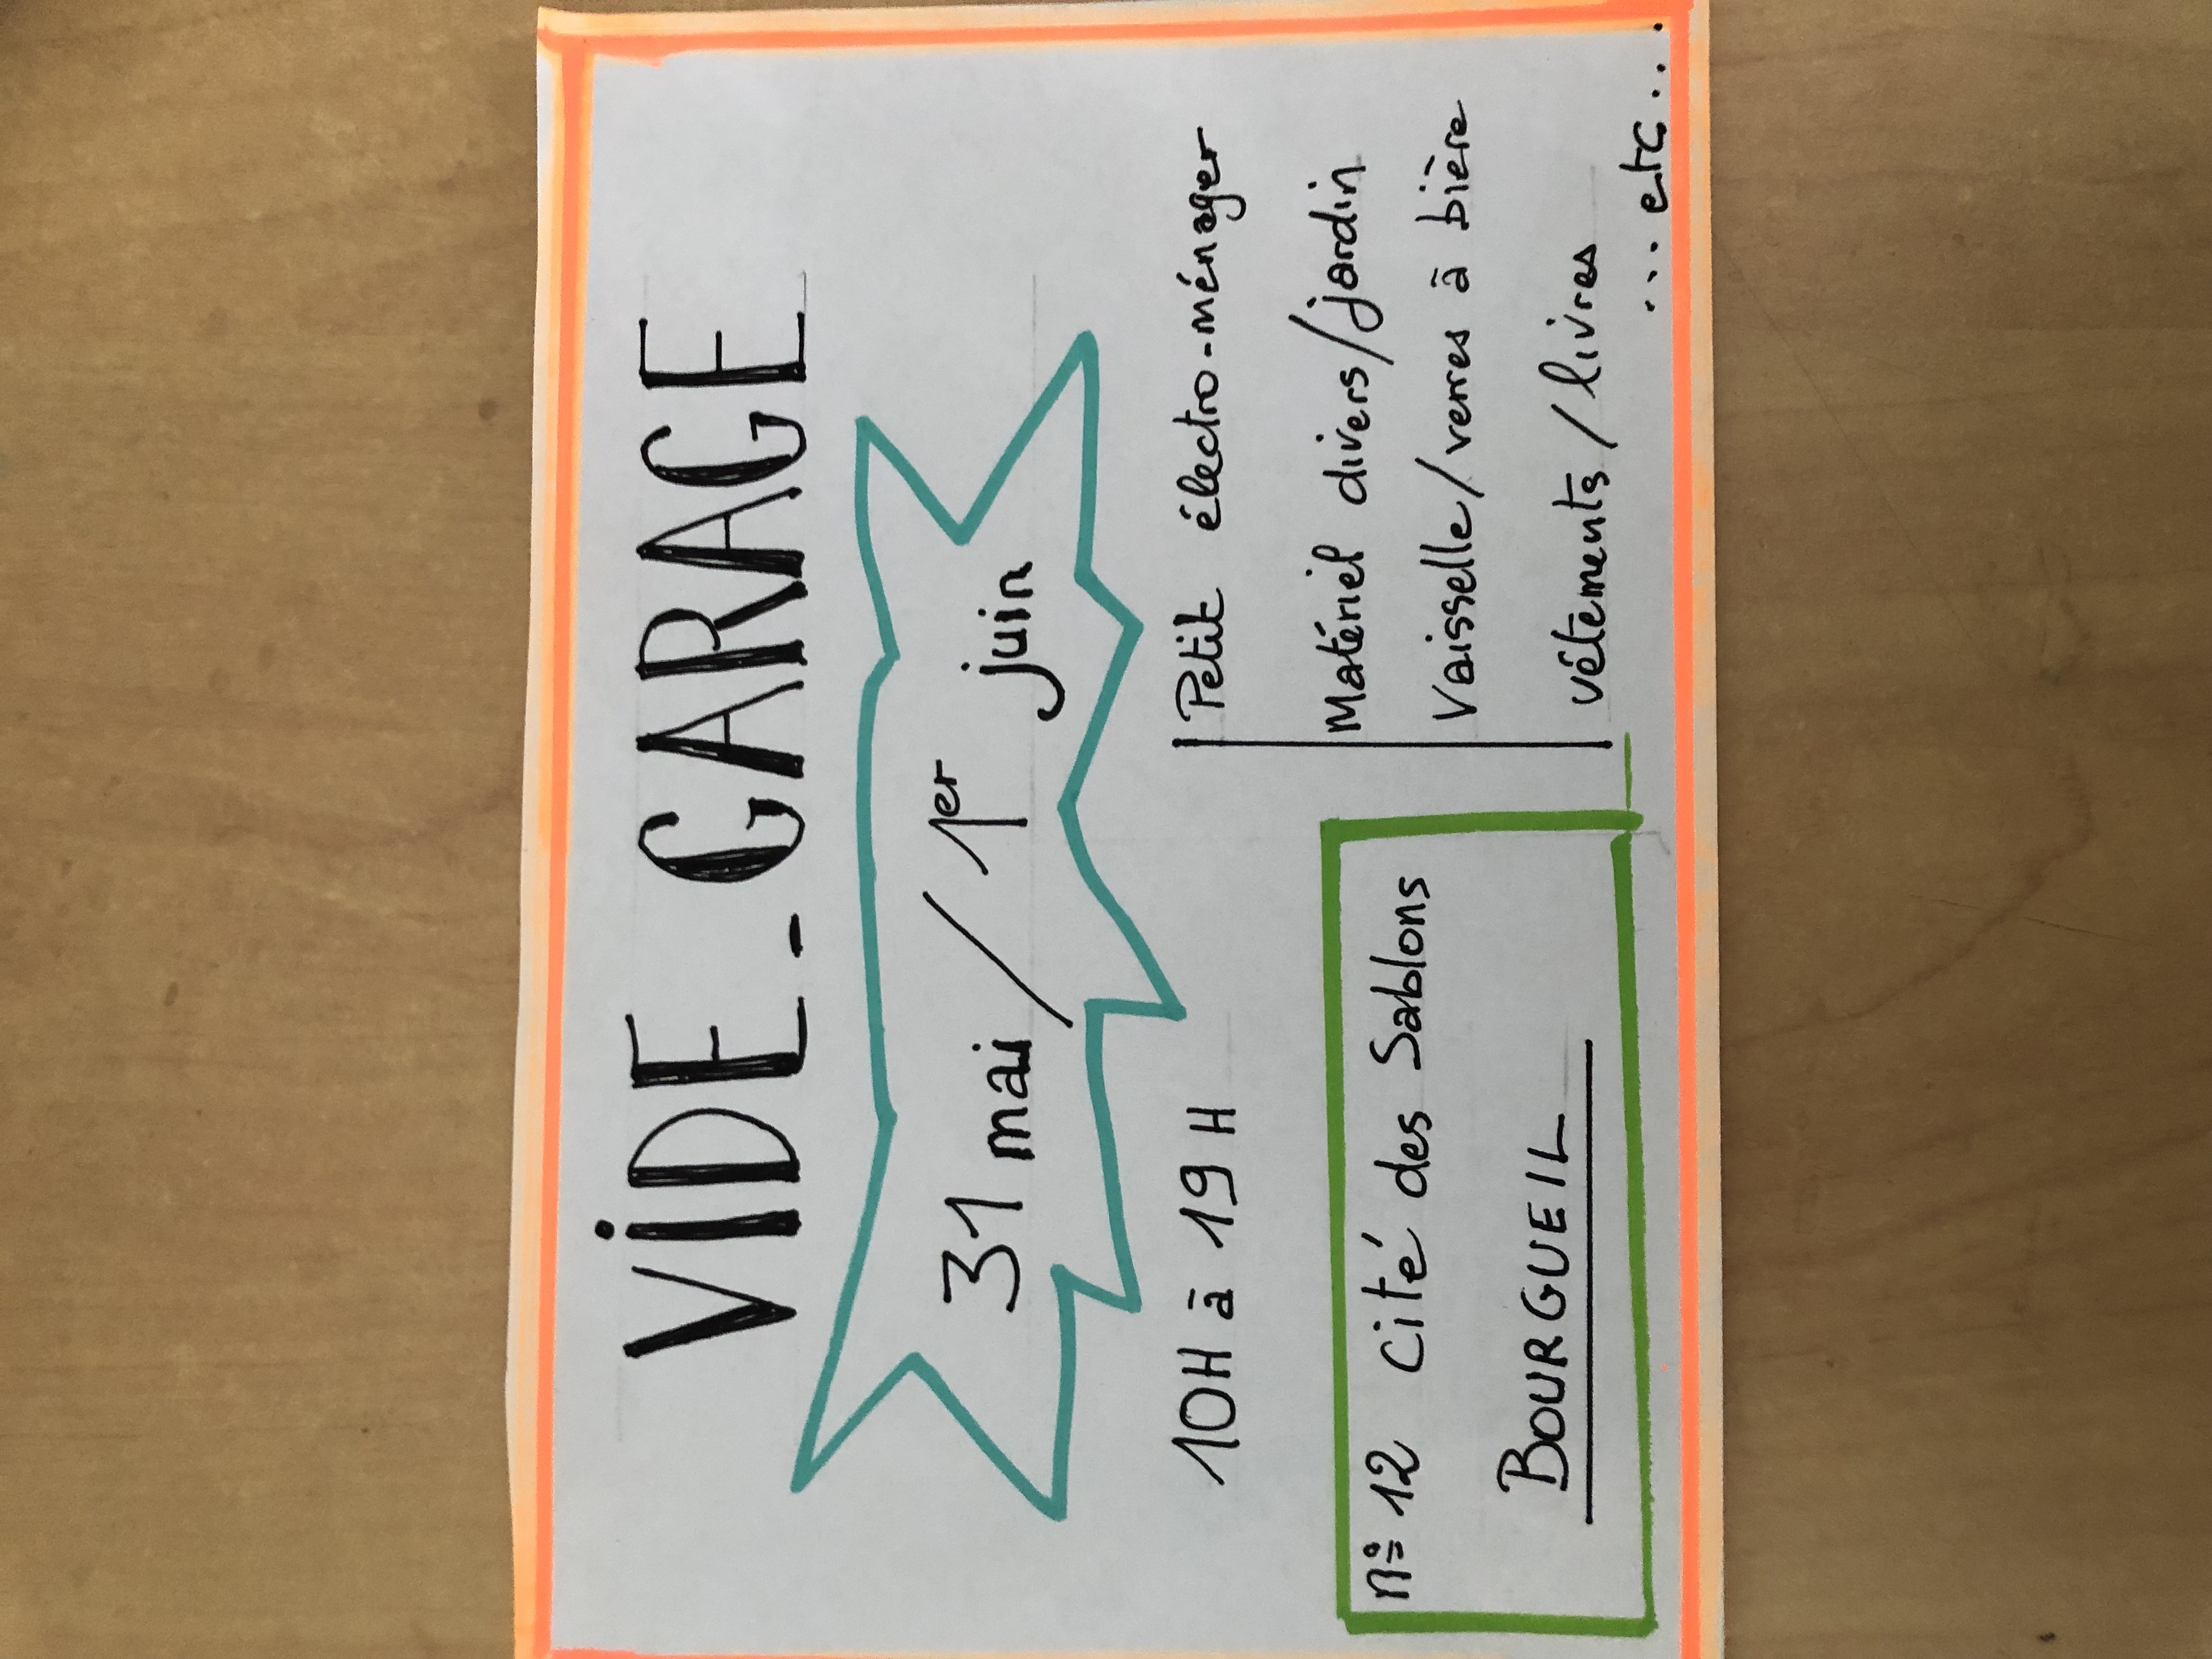 VIDE-GARAGE
31 mai / 1er juin
10H à 19H
n° 12 Cité des Sablons
BOURGUEIL
Petit électro-ménager
Matériel divers/jardin
Vaisselle/verres à bière
vêtements/livres
... etc...